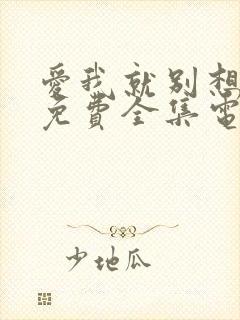 愛我就別想
免費全集電
少地瓜